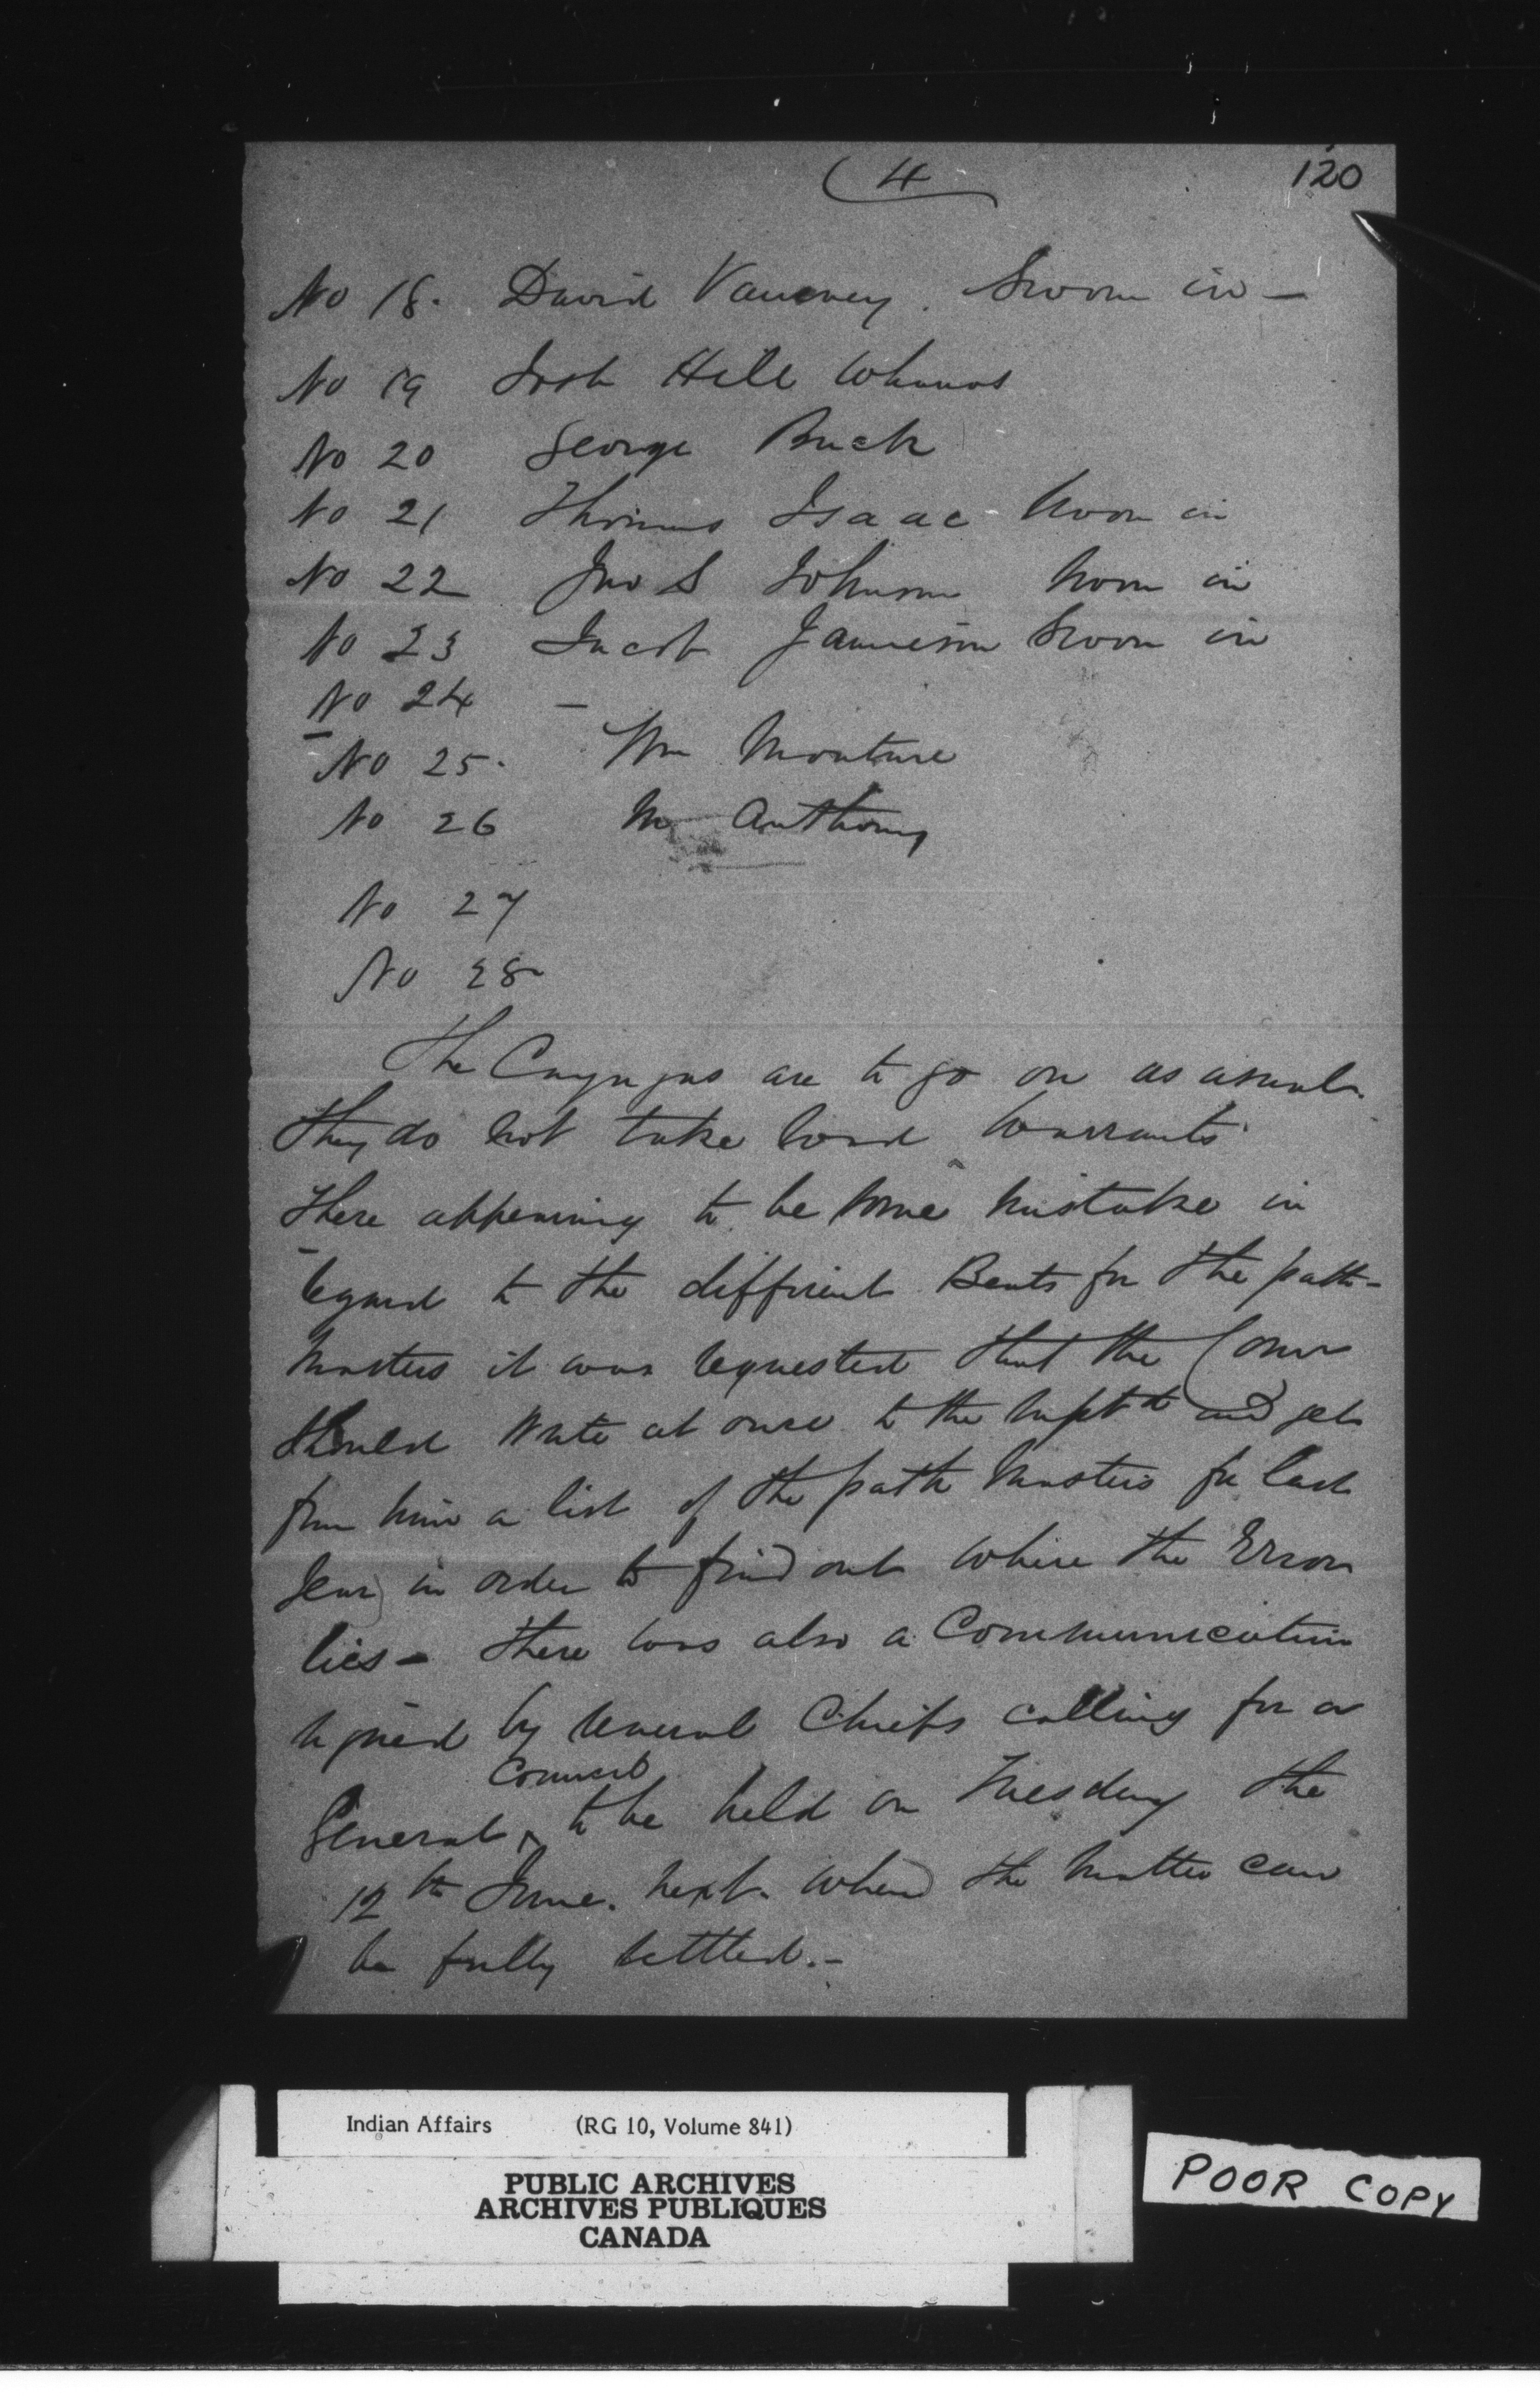 4
120
No 18. David Vanevery. Sworn in —
No 19 Josh Hill
No 20 George Buck
No 21 Thomas Isaac Sworn in
No 22 Jno S Johnson Sworn in
No 23 Jacob Jamieson Sworn in
No 24 —
No 25. Wm Monture
No 26 M Anthony
No 27
No 28
The Cayugas are to go on as usual.
they do not take Warrants
There appearing to be some mistake in
regard to the different Beats for the path-
Masters it was requested that the Comr
should Write at once to the Supt and get
from him a list of the path Masters for last
Year in order to find out where the Error
lies — there was also a Communication
signed by several Chiefs calling for a
Council
General ^ to be held on Tuesday the
12th June. next. when the matter can
be fully settled. —
Indian Affairs (RG 10, Volume 841)
PUBLIC ARCHIVES
ARCHIVES PUBLIQUES
CANADA
POOR COPY